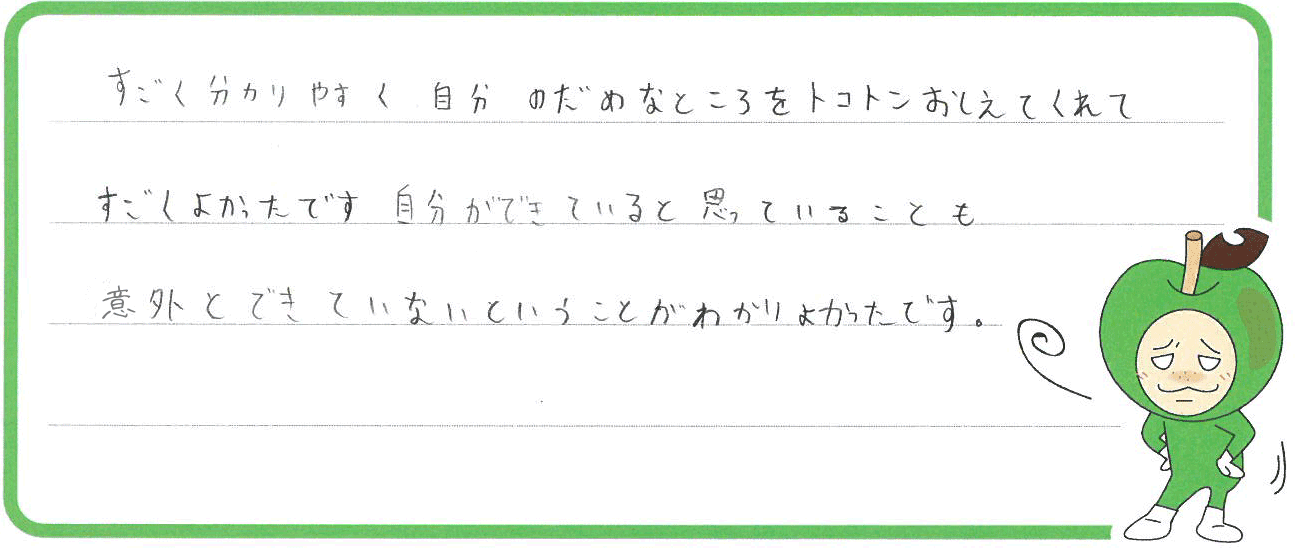 すごく分かりやすく 自分のだめなところをトコトンおしえてくれて
すごくよかったです 自分ができていると思っていることも
意外とできていないということがわかりよかったです。